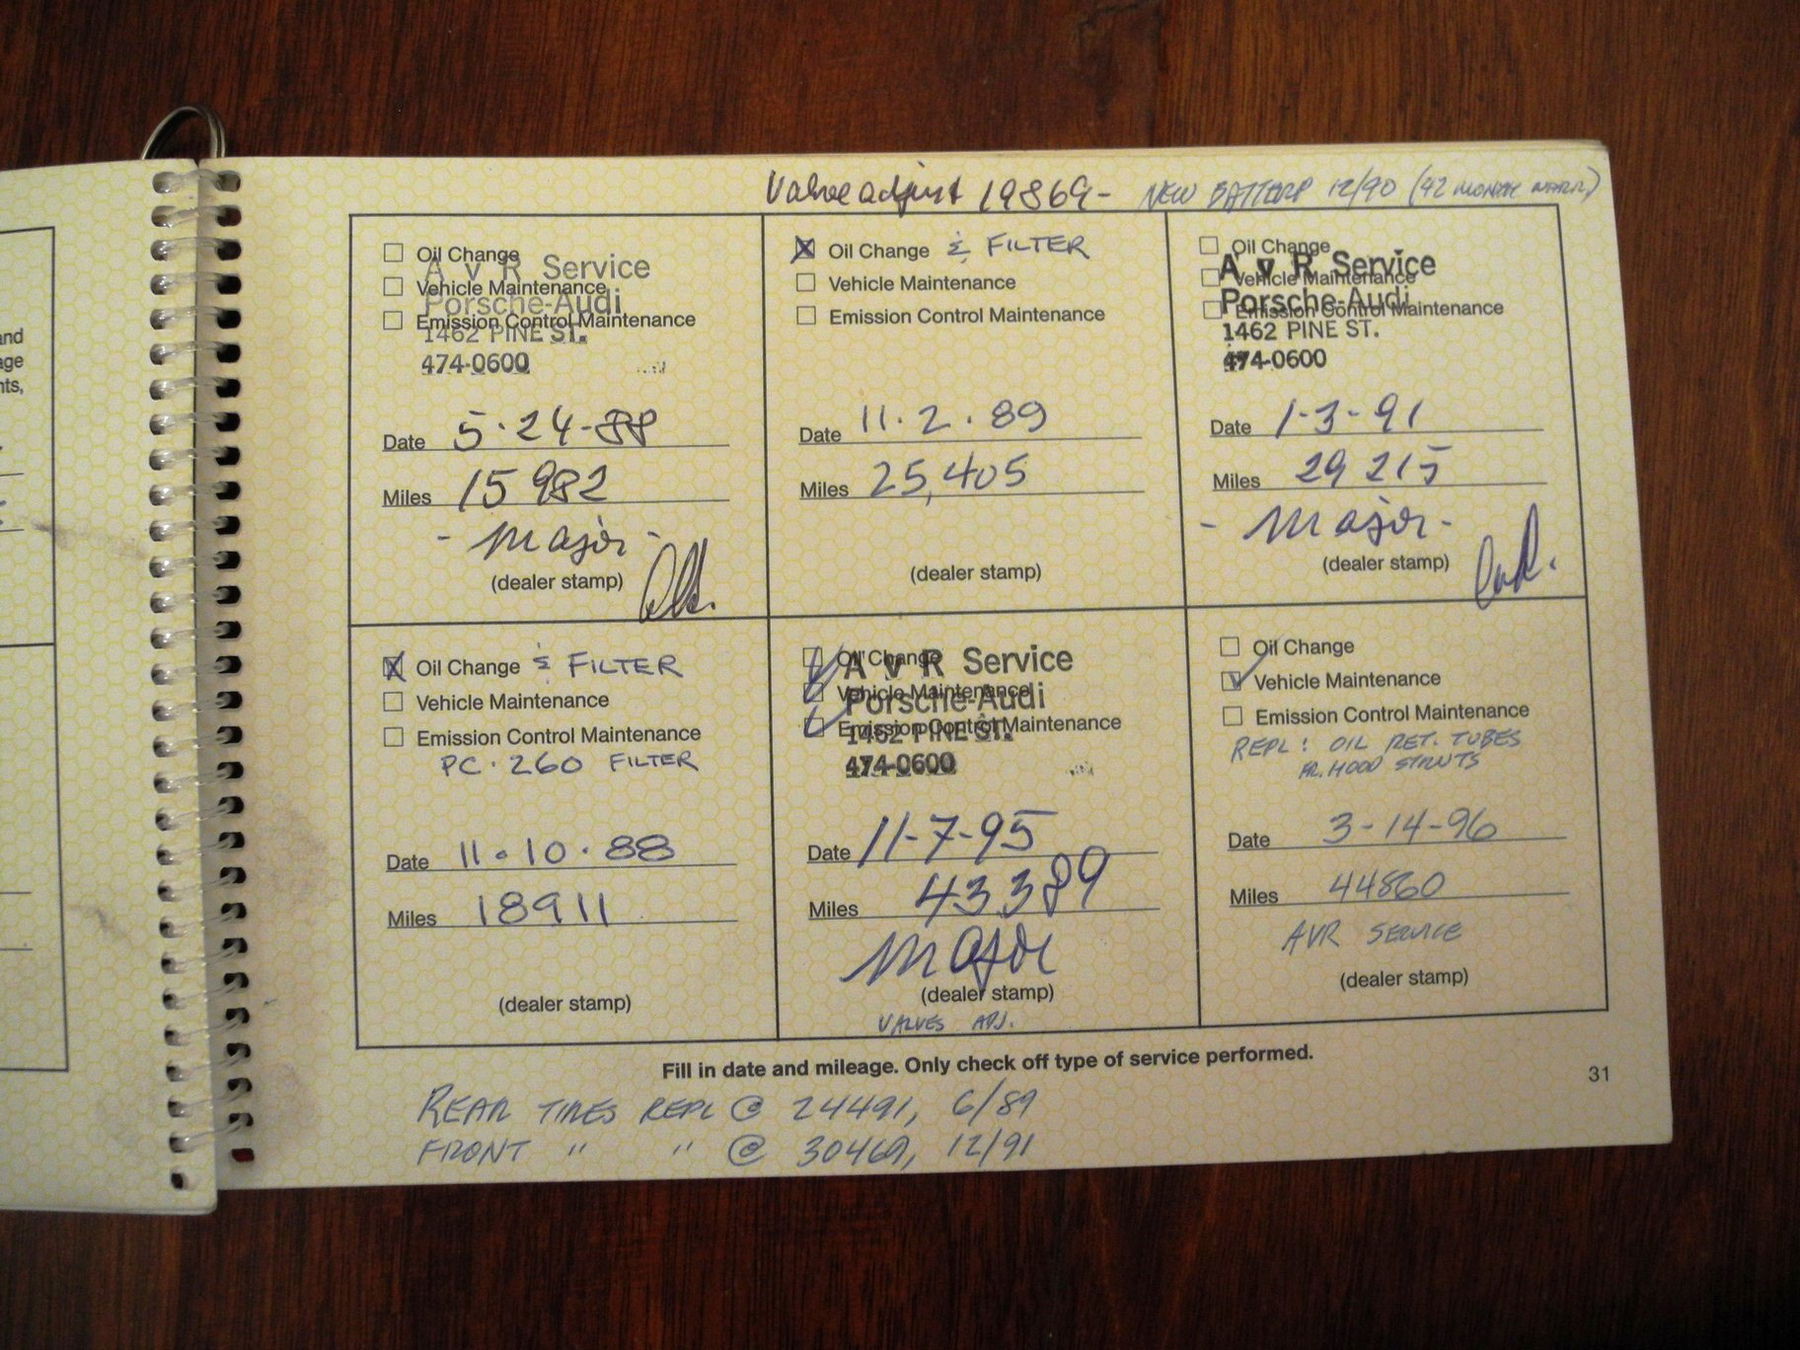 and
age
nts,
Valve adjust 19869- NEW BATTERY 12/90 (42 MONTH WARR.)
Oil Change
Vehicle Maintenance
Emission Control Maintenance
A v R Service
Porsche-Audi
1462 PINE ST.
474-0600
Date 5·24-88
Miles 15982
- Major -
(dealer stamp)
X Oil Change & FILTER
Vehicle Maintenance
Emission Control Maintenance
Date 11·2·89
Miles 25,405
(dealer stamp)
Oil Change
Vehicle Maintenance
Emission Control Maintenance
A v R Service
Porsche-Audi
1462 PINE ST.
474-0600
Date 1-3-91
Miles 29215
- Major -
(dealer stamp)
X Oil Change & FILTER
Vehicle Maintenance
Emission Control Maintenance
PC·260 FILTER
Date 11·10·88
Miles 18911
(dealer stamp)
Oil Change
Vehicle Maintenance
Emission Control Maintenance
A v R Service
Porsche-Audi
1462 PINE ST.
474-0600
Date 11-7-95
Miles 43389
Major
(dealer stamp)
VALVES ADJ.
Oil Change
Vehicle Maintenance
Emission Control Maintenance
REPL: OIL RET. TUBES
FR. HOOD STRUTS
Date 3-14-96
Miles 44860
AVR SERVICE
(dealer stamp)
Fill in date and mileage. Only check off type of service performed.
31
REAR TIRES REPL @ 24491, 6/89
FRONT " " @ 30469, 12/91